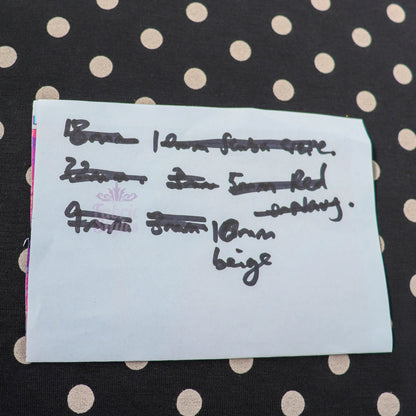 18mm 10mm
22mm. 3mm 5mm Red
9mm 3mm 10mm
beige
Fabric